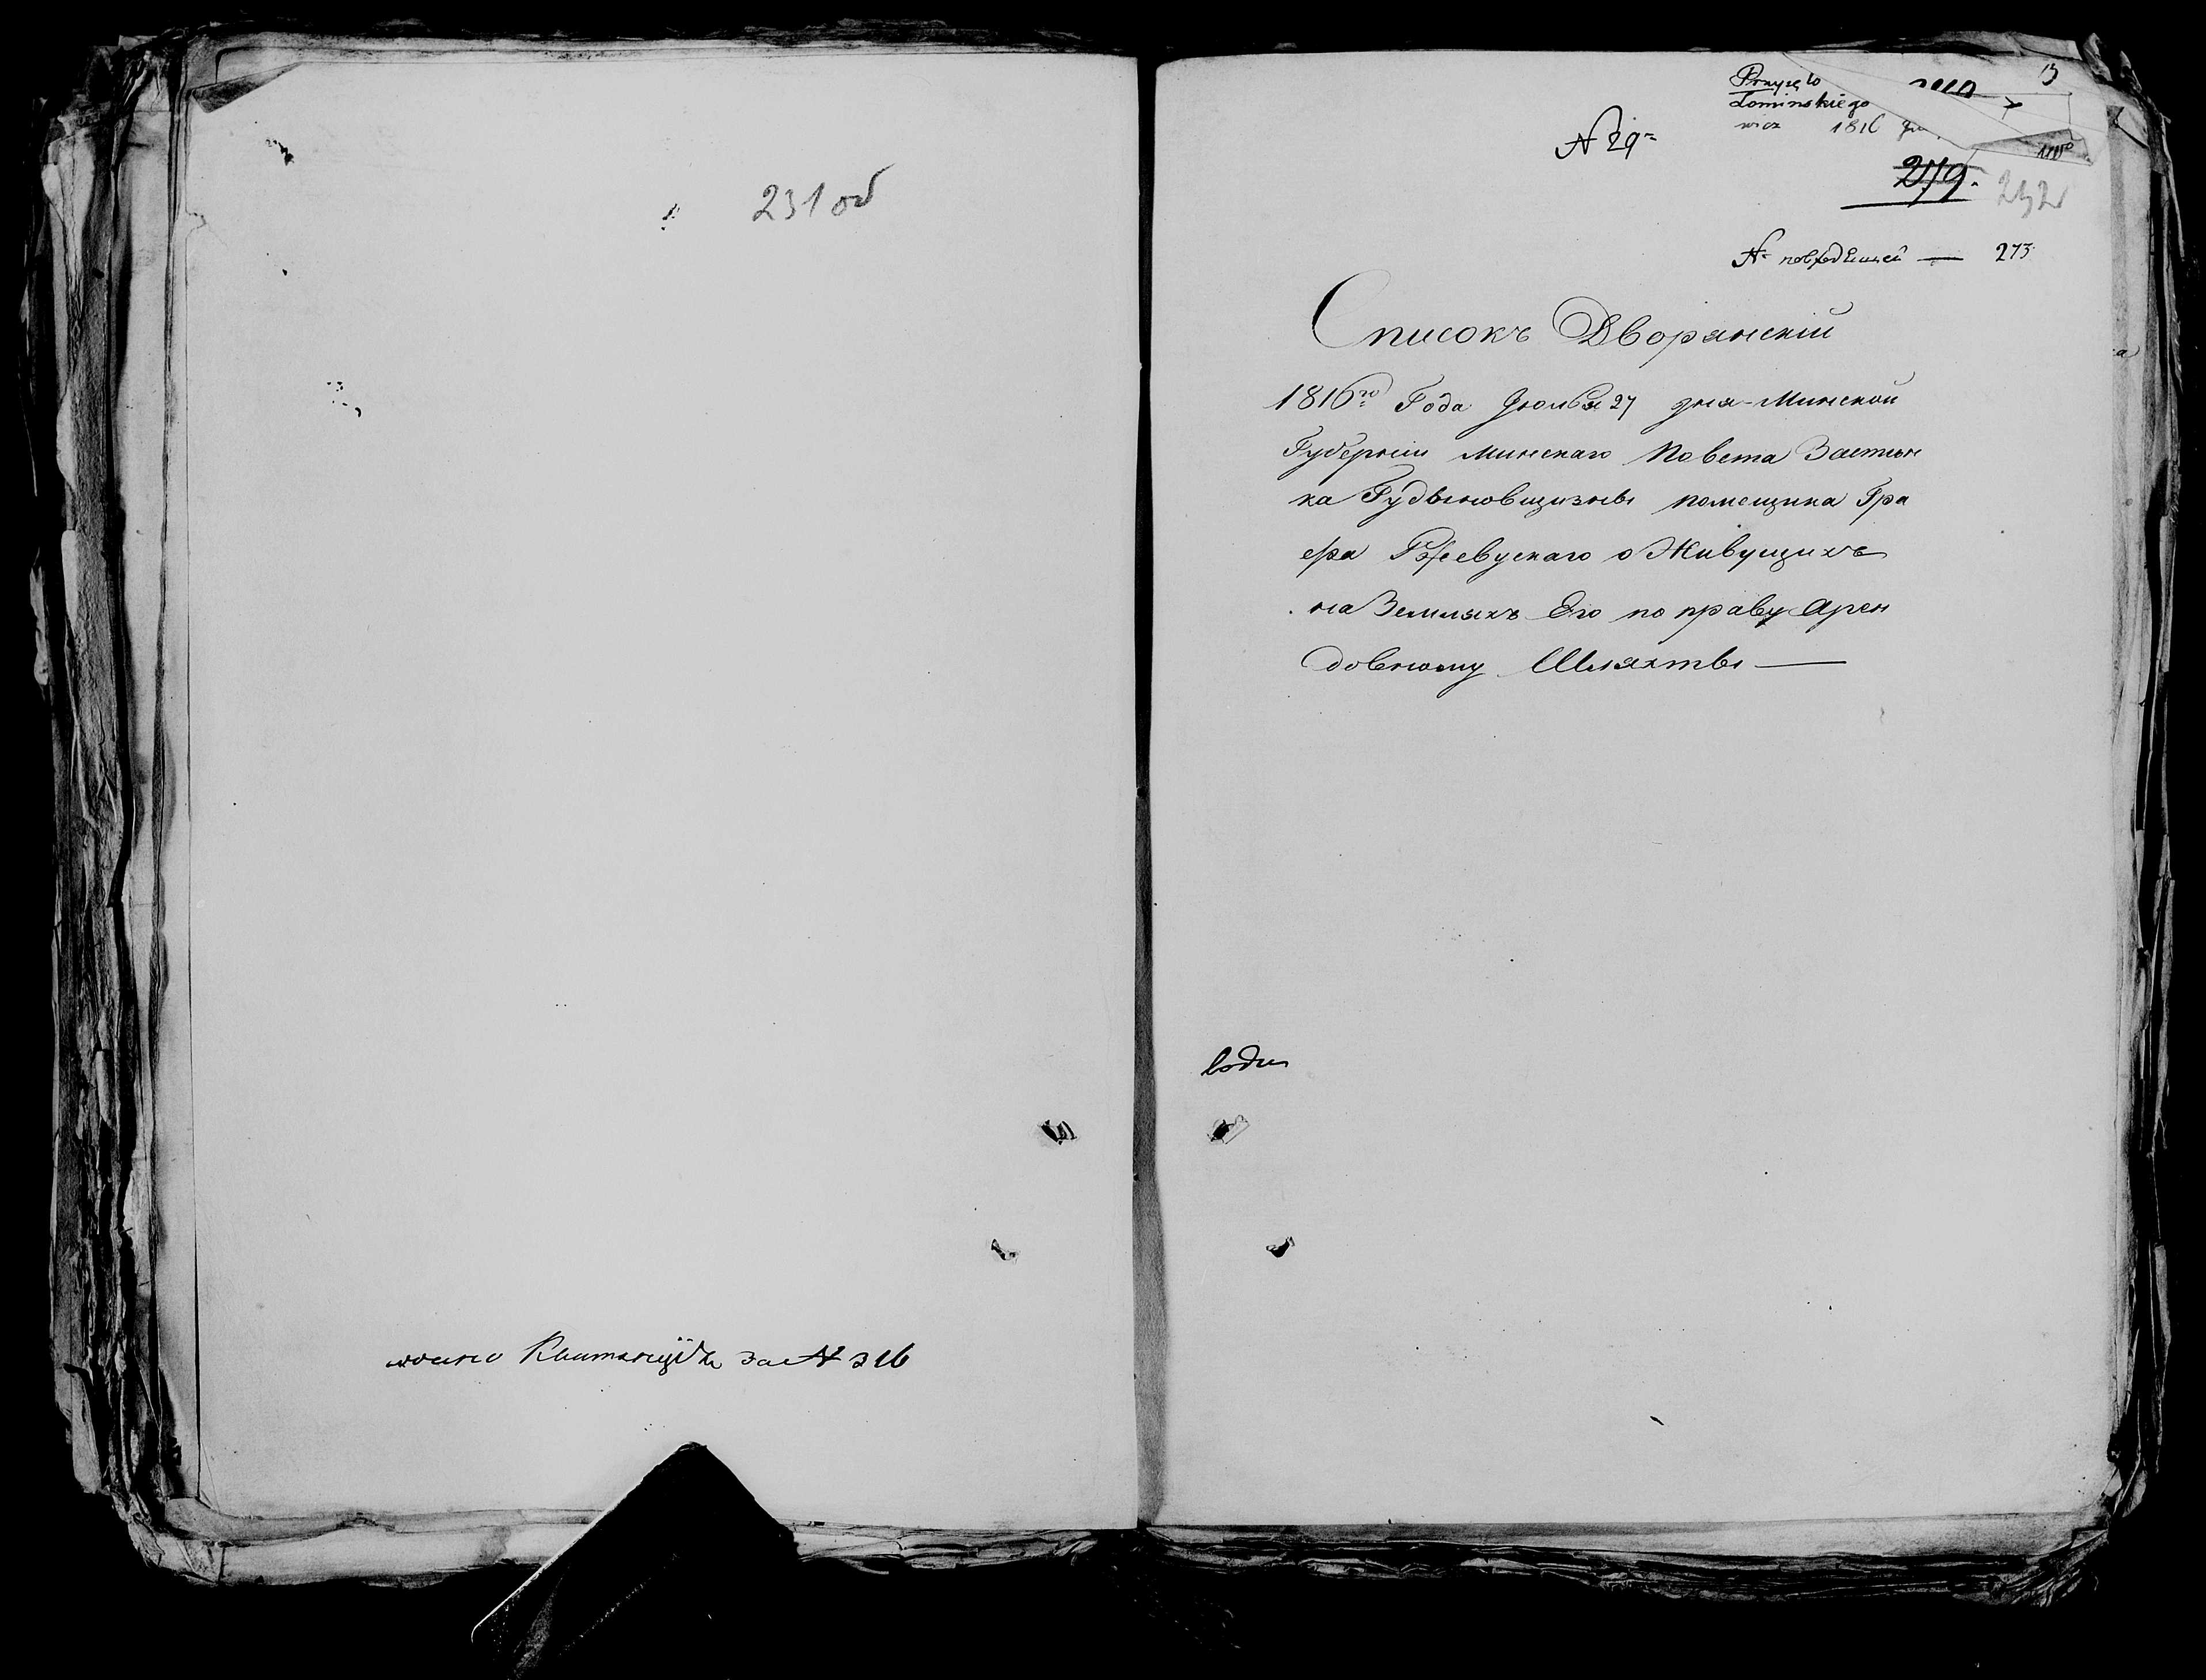 231 об
дано Квитанцiя За № 316
Łominskiego
1816
№ 29
219.
232
№ - 273
Списокъ Дворянскiй
1816го Года Июля 27 дня Минской
Губернiи Минскаго Повета Застен
ка Гудыновщизны помещика Гра
фа Ржевускаго о Живущихъ
на Земляхъ Его по праву Арен
довному Шляхты —